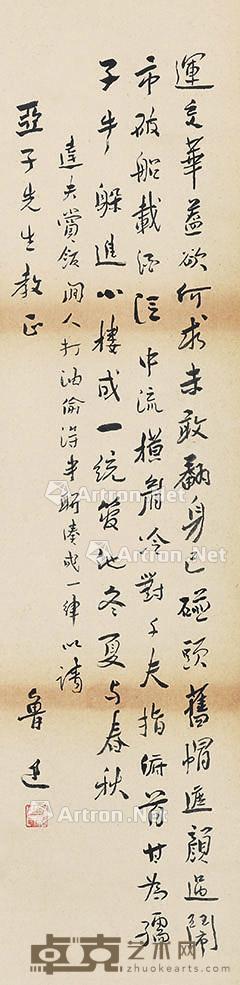 運交華蓋欲何求未敢翻身已碰頭舊帽遮顏過鬧
市破船載酒泛中流橫眉冷對千夫指俯首甘為孺
子牛躲進小樓成一統管他冬夏與春秋
達夫賞飯閒人打油偷得半聯湊成一律以請
亞子先生教正
魯迅
Artron.Net
Artron.Net
Artron.Net
Artron.Net
卓克艺术网
zhuokearts.com